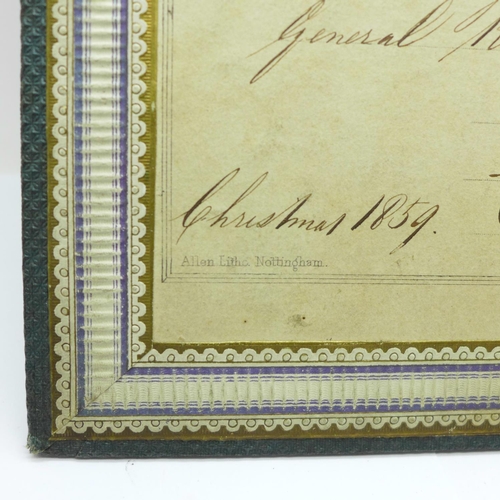 General
Christmas 1859.
Allen Litho. Nottingham.